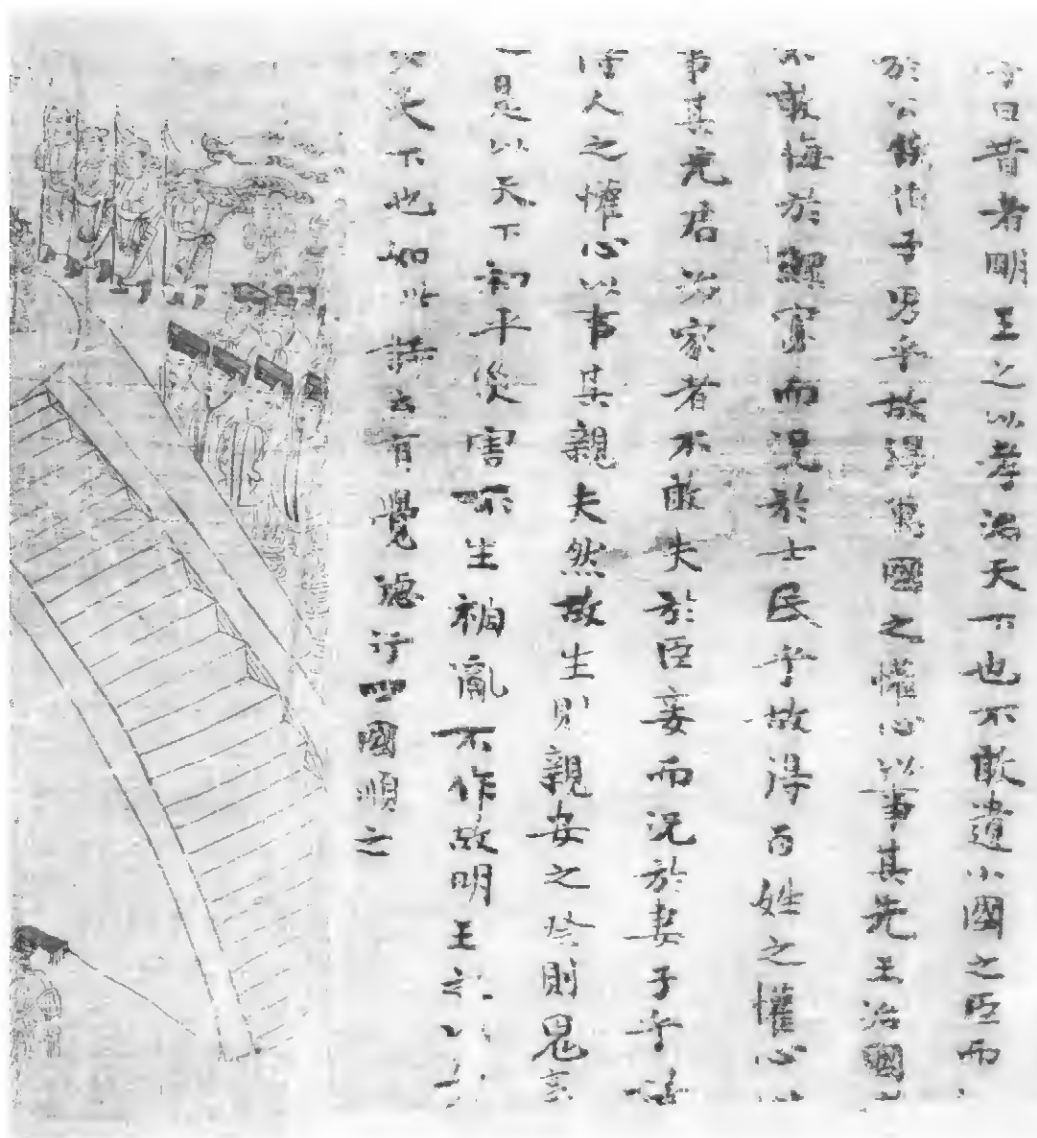 子曰昔者明王之以孝治天下也不敢遺小國之臣而
於公侯伯子男乎故得萬國之懽心以事其先王治國
不敢侮於鰥寡而況於士民乎故得百姓之懽心以
事其先君治家者不敢失於臣妾而況於妻子乎故
得人之懽心以事其親夫然故生則親安之祭則鬼享
是以天下和平災害不生禍亂不作故明王之以
天下也如此詩云有覺德行四國順之